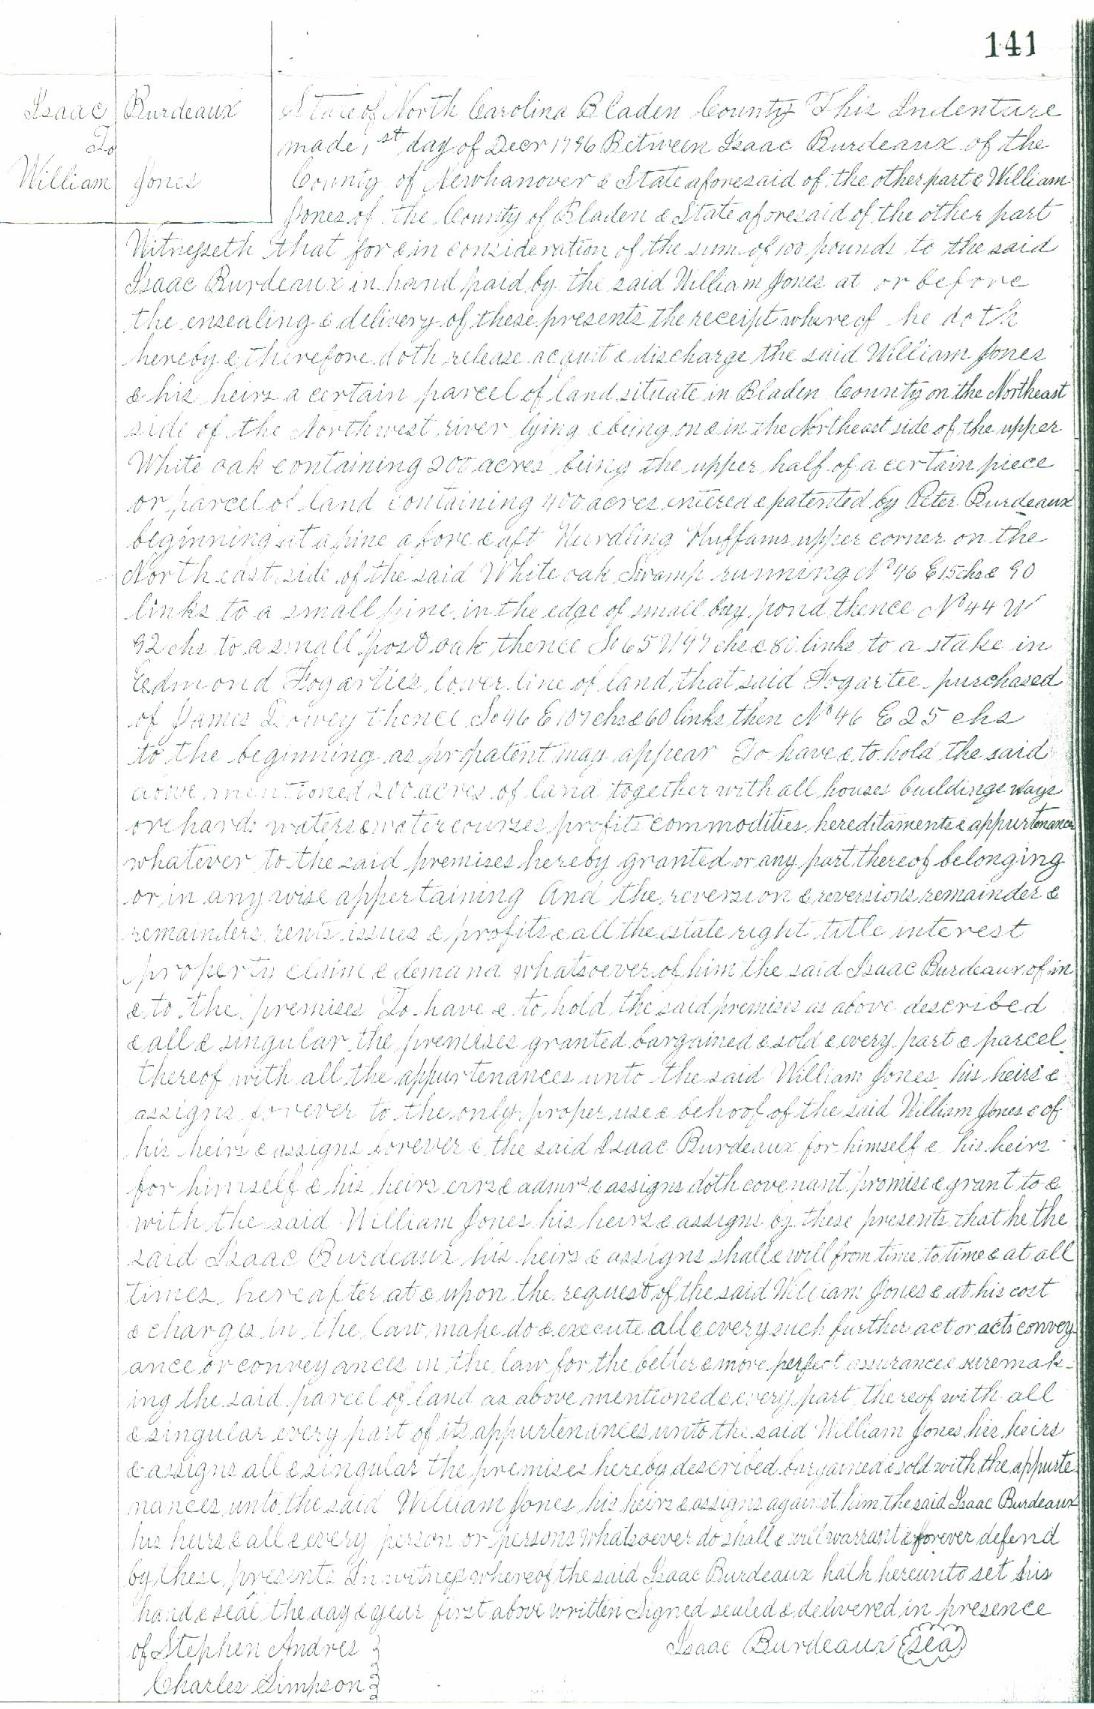 141
Isaac Burdeaux
To
William Jones
State of North Carolina Bladen County This Indenture
made 1st day of Decr 1796 Between Isaac Burdeaux of the
County of Newhanover & State aforesaid of the other part & William
Jones of the County of Bladen & State aforesaid of the other part
Witnesseth that for & in consideration of the sum of 100 pounds to the said
Isaac Burdeaux in hand paid by the said William Jones at or before
the ensealing & delivery of these presents the receipt whereof he doth
hereby & therefore doth release acquit & discharge the said William Jones
& his heirs a certain parcel of land situate in Bladen County on the Northeast
side of the Northwest river lying & being on & in the Northeast side of the upper
White oak containing 200 acres being the upper half of a certain piece
or parcel of land containing 400 acres entered & patented by Peter Burdeaux
beginning at a pine afore & aft Huffams upper corner on the
North east side of the said White oak Swamp running No 46 E 15 chs & 90
links to a small pine in the edge of small bay pond thence No 44 W
92 chs to a small post oak thence So 65 W 47 chs & 80 links to a stake in
Edmond Fogarties lower line of land that said Fogartee purchased
of James Dowey thence So 46 E 107 chs & 60 links then No 46 E 25 chs
to the beginning as pr patent may appear To have & to hold the said
above mentioned 200 acres of land together with all houses buildings ways
orchards waters & watercourses profits commodities hereditaments & appurtenances
whatever to the said premises hereby granted or any part thereof belonging
or in any wise appertaining And the reversion & reversions remainder &
remainders rents issues & profits & all the estate right title interest
property claim & demand whatsoever of him the said Isaac Burdeaux of in
& to the premises To have & to hold the said premises as above described
& all & singular the premises granted bargained & sold & every part & parcel
thereof with all the appurtenances unto the said William Jones his heirs &
assigns forever to the only proper use & behoof of the said William Jones & of
his heirs & assigns forever & the said Isaac Burdeaux for himself & his heirs
for himself & his heirs exrs & admrs & assigns doth covenant promise & grant to &
with the said William Jones his heirs & assigns by these presents that he the
said Isaac Burdeaux his heirs & assigns shall & will from time to time & at all
times hereafter at & upon the request of the said William Jones & at his cost
& charges in the law make do & execute all & every such further act or acts convey
ance or conveyances in the law for the better & more perfect assurance & suremak-
ing the said parcel of land as above mentioned & every part thereof with all
& singular every part of its appurtenances unto the said William Jones his heirs
& assigns all & singular the premises hereby described bargained & sold with the appurte
nances unto the said William Jones his heirs & assigns against him the said Isaac Burdeaux
his heirs & all & every person or persons whatsoever do shall & will warrant & forever defend
by these presents In witness whereof the said Isaac Burdeaux hath hereunto set his
hand & seal the day & year first above written Signed sealed & delivered in presence
of Stephen Andres
Isaac Burdeaux (sea)
Charles Simpson